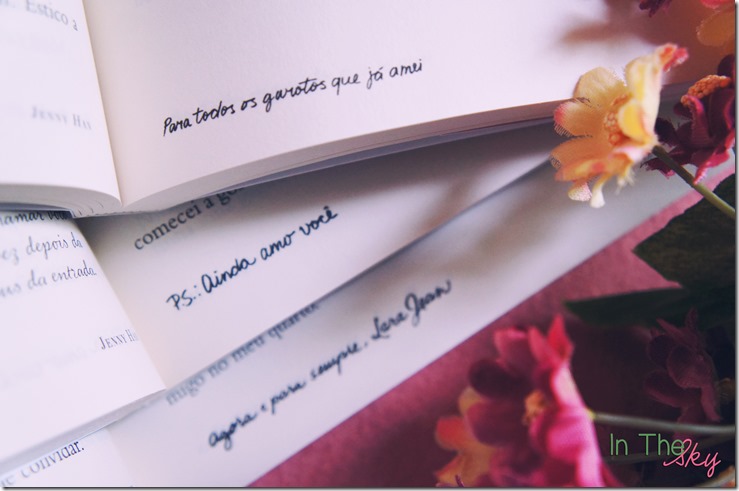 . Estico a
JENNY HAN
Para todos os garotos que já amei
comecei a
PS.: Ainda amo você
ez depois da
us da entrada.
JENNY HAN
migo no meu quarto.
agora e para sempre, Lara Jean
e convidar.
In The Sky